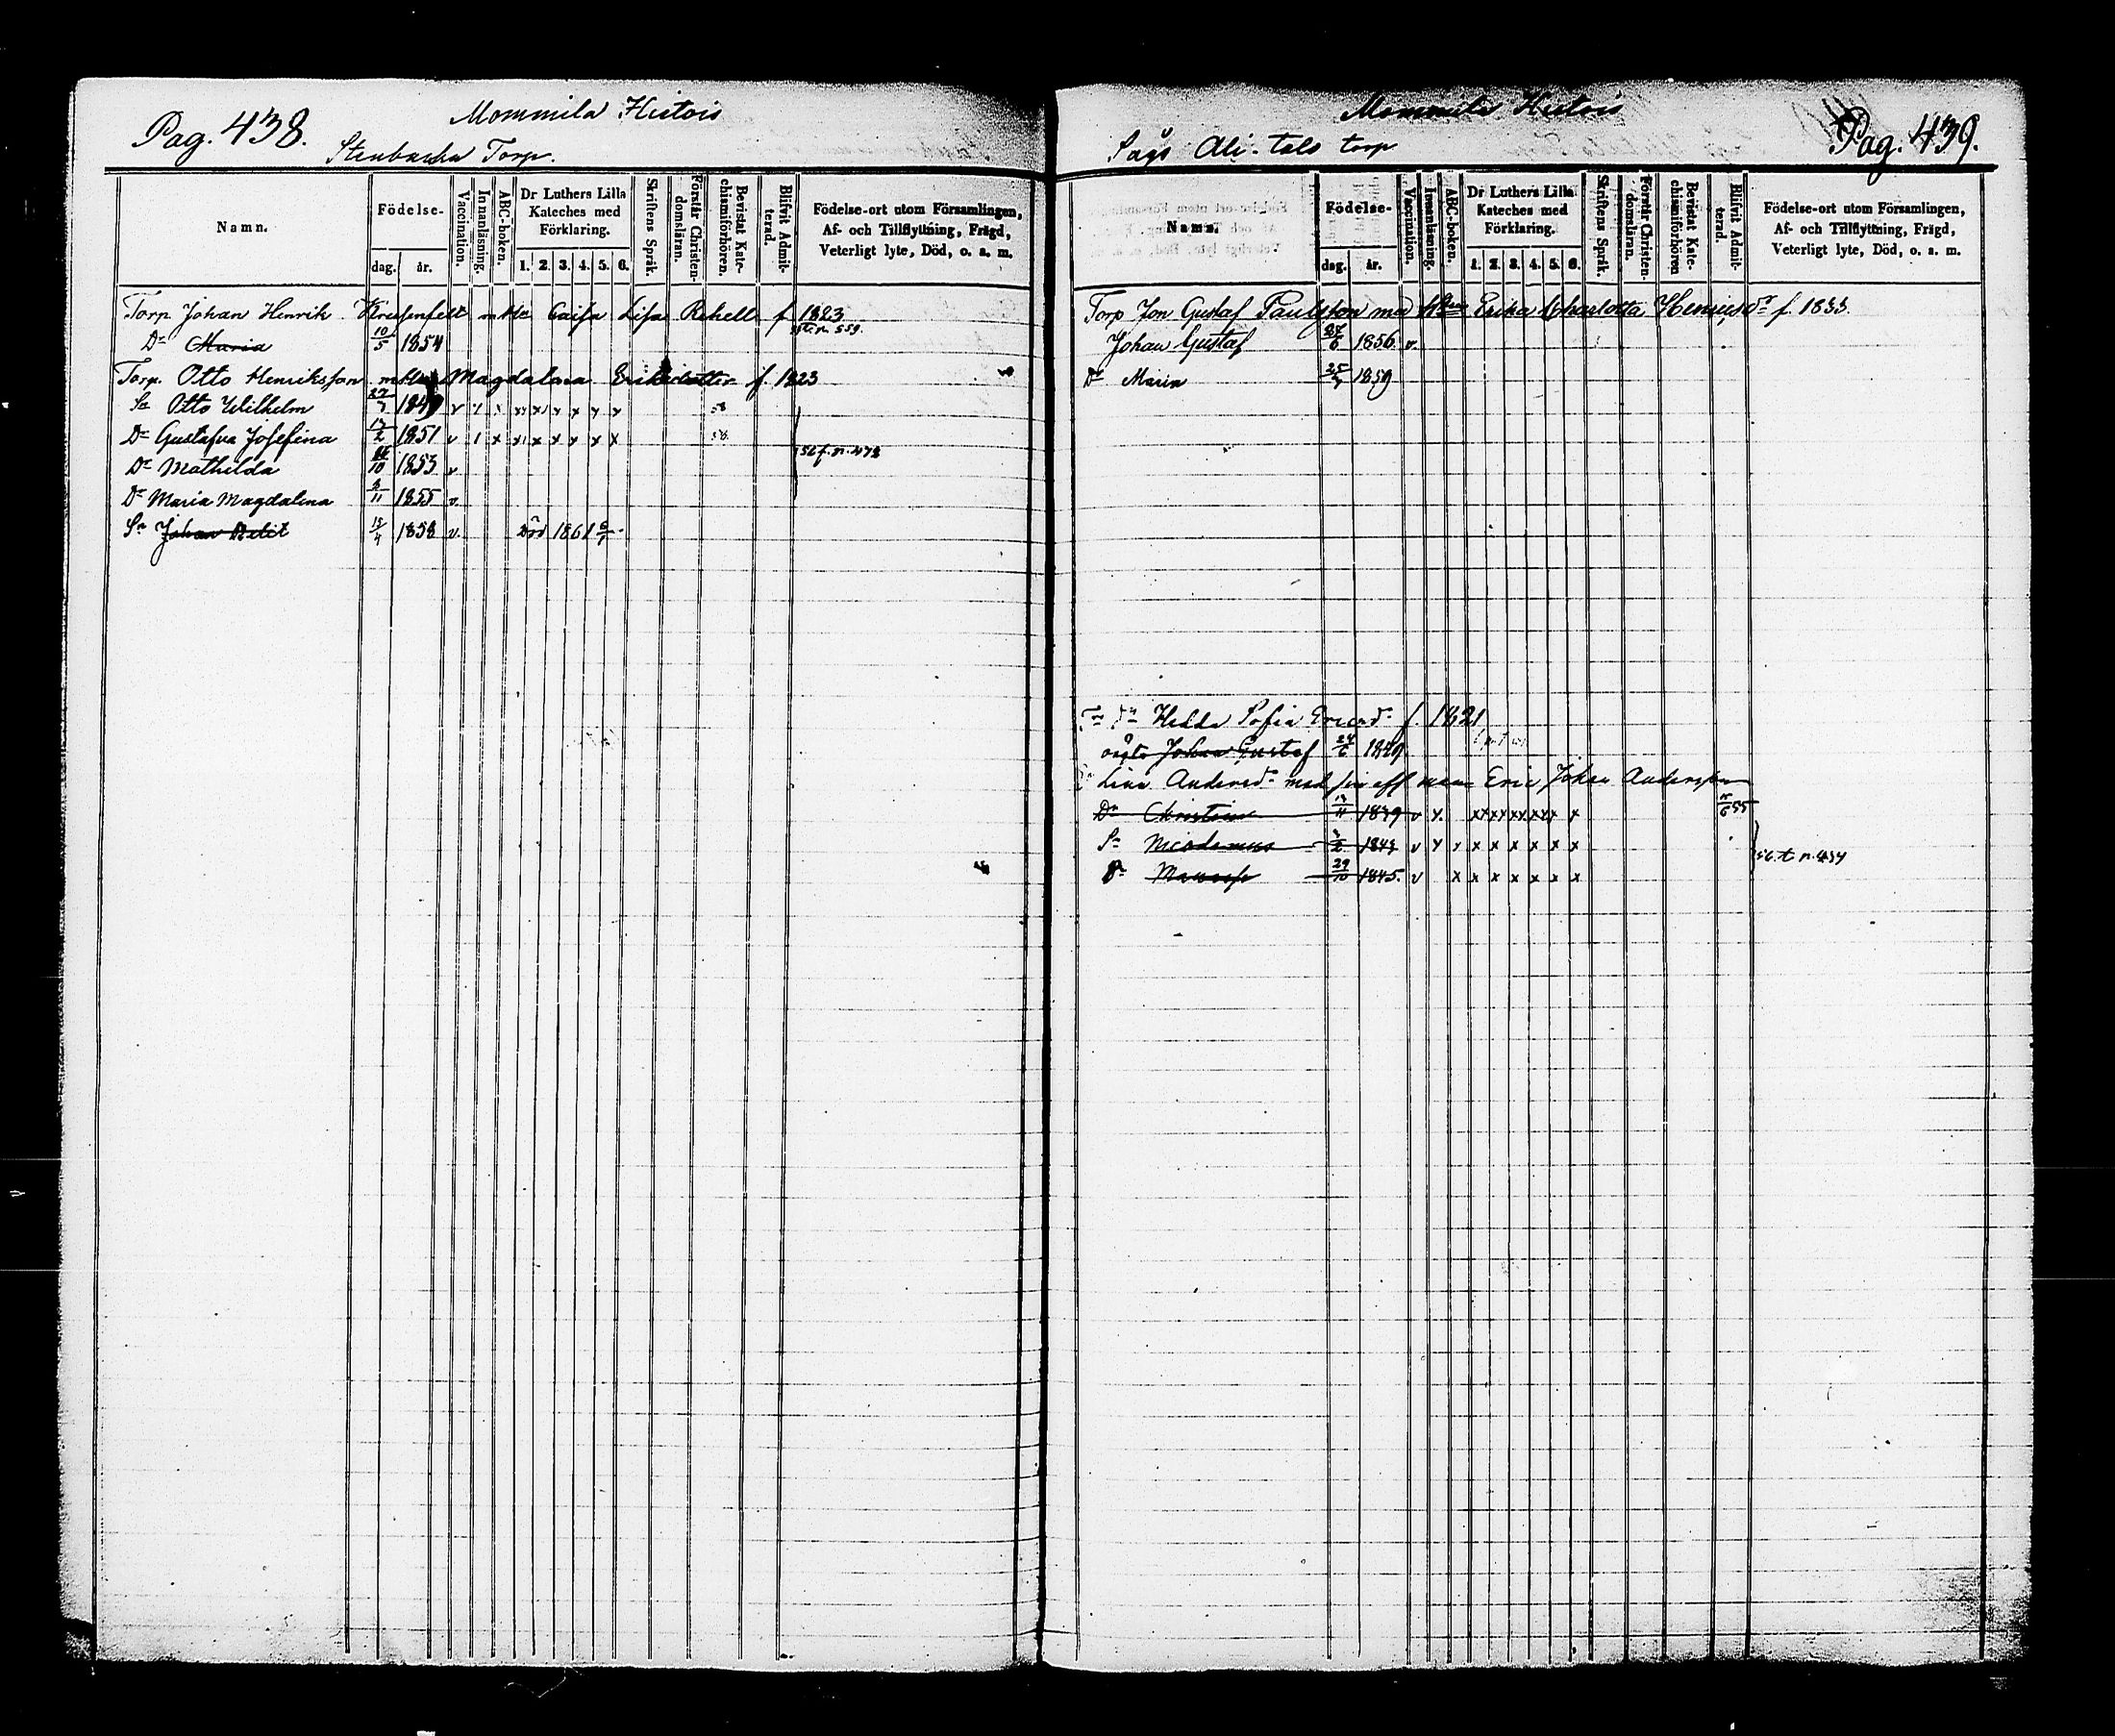 Pag. 438.
Mommila Histois
Stenbacka Torp.
Namn.
Födelse-
dag. år.
Vaccination.
Innanläsning.
ABC-boken.
Dr Luthers Lilla Kateches med Förklaring.
1. 2. 3. 4. 5. 6.
Skriftens Språk.
Förstår Christendomsläran.
Bevistat Katechismiförhören.
Blifvit Admitterad.
Födelse-ort utom Församlingen,
Af- och Tillflyttning, Frägd,
Veterligt lyte, Död, o. s. m.
Torp Johan Henrik Kreusenfelt m Hu Caisa Lisa Rehell f 1823
Dr Maria 10/5 1854 n. 559.
Torp. Otto Henriksson m Hu Magdalena f. 1823
Sn Otto Wilhelm 1849 v x x x x x x x 58
Dr Gustafva Josefina 1851 v x x x x x x x 58.
n. 478
Dr Mathilda 1853 v
Dr Maria Magdalena 2/11 1855 v.
Sn Johan 1858 v. Död 1861
Mommila Histois
Pag. 439.
Sågs Ali-talo torp
Namn.
Födelse-
dag. år.
Vaccination.
Innanläsning.
ABC-boken.
Dr Luthers Lilla Kateches med Förklaring.
1. 2. 3. 4. 5. 6.
Skriftens Språk.
Förstår Christendomsläran.
Bevistat Katechismiförhören
Blifvit Admitterad.
Födelse-ort utom Församlingen,
Af- och Tillflyttning, Frägd,
Veterligt lyte, Död, o. s. m.
Torp Jon Gustaf Paulsson med Hu Erika Charlotta Henricsdr f. 1833.
Johan Gustaf 27/6 1856 v.
Dr Maria 1859
Hedda Sofia Ericsd. f. 1821
oägta Johan Gustaf 24/6 1849
Lina Andersd. med sin aff man Eric Johan Andersson
Dr Christina 1839 v x. x x x x x x x 55
Sn Nicodemus 1843 v x x x x x x x x
n. 434
Dr 29/10 1845. v x x x x x x x